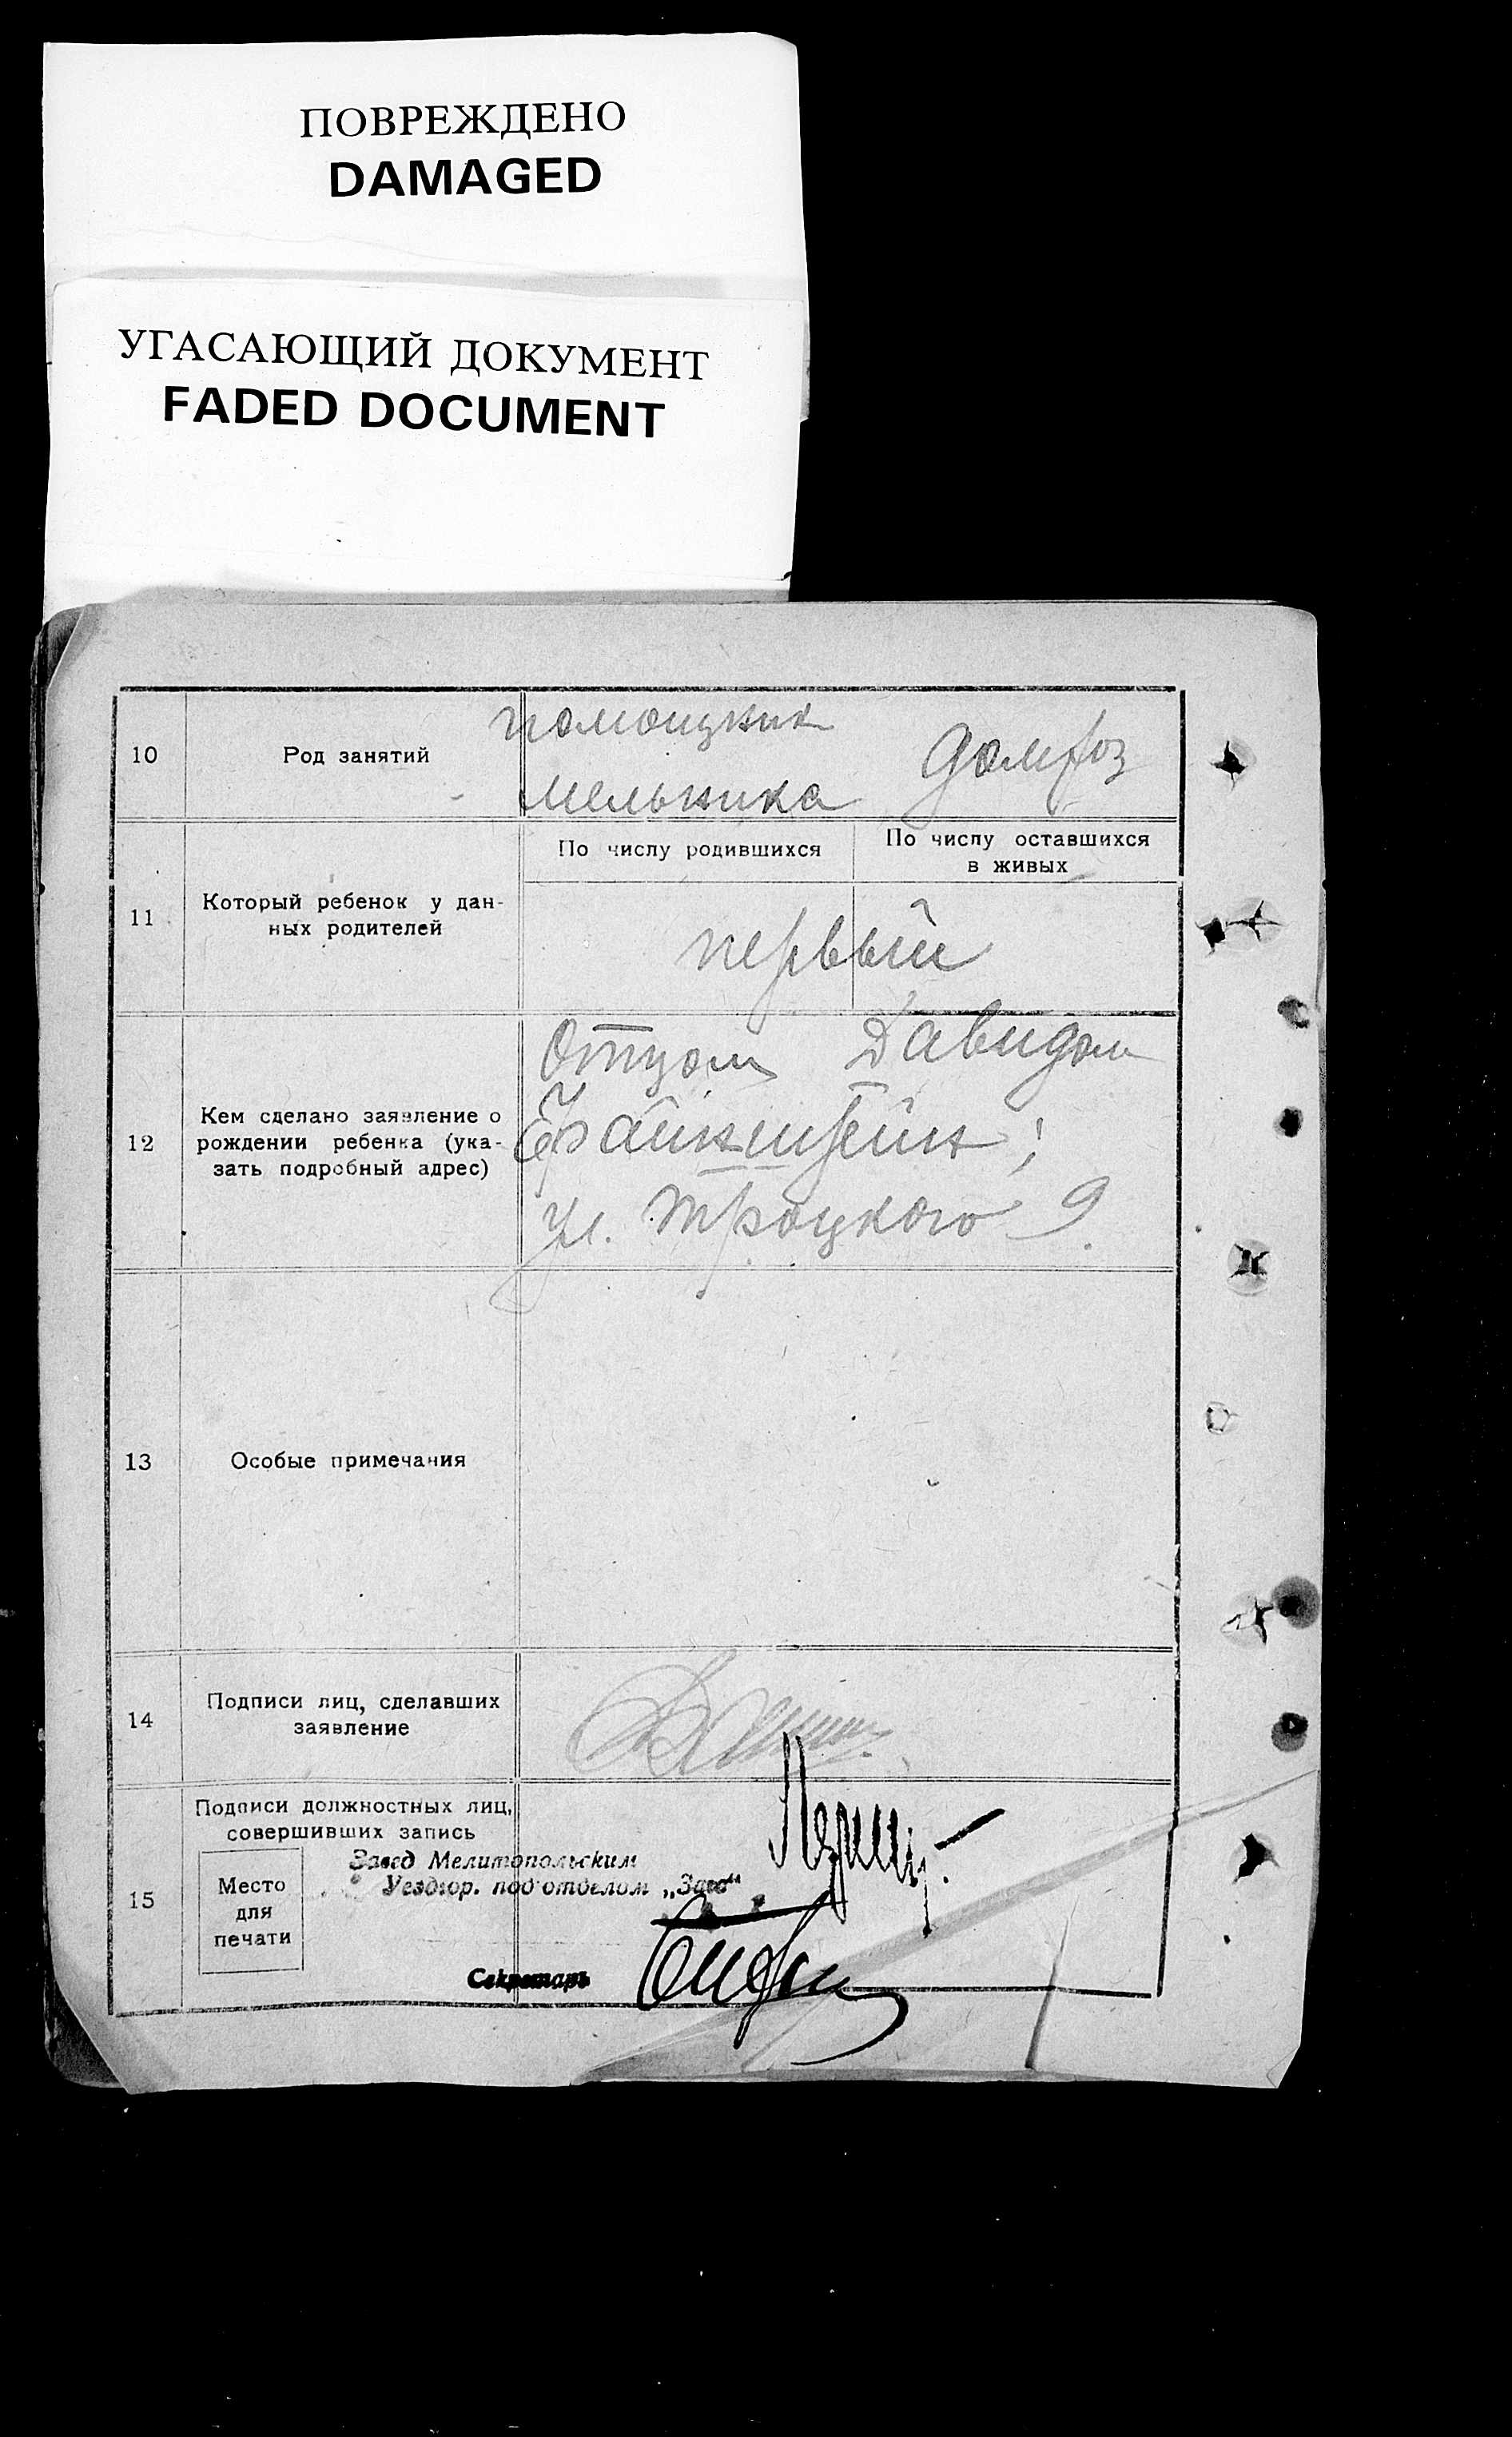 ПОВРЕЖДЕНО
DAMAGED
УГАСАЮЩИЙ ДОКУМЕНТ
FADED DOCUMENT
10
Род занятий
помощник
мельника
домхоз
11
Который ребенок у дан-
ных родителей
По числу родившихся
По числу оставшихся
в живых
первый
12
Кем сделано заявление о
рождении ребенка (ука-
зать подробный адрес)
Отцом Давидом
ул. Троцкого 9.
13
Особые примечания
14
Подписи лиц, сделавших
заявление
15
Подписи должностных лиц,
совершивших запись
Место
для
печати
Завед Мелитопольским
Уездгор. под'отделом „Загс"
Секретарь